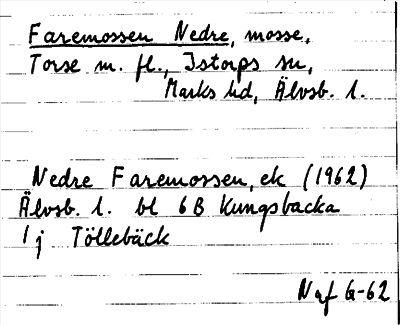 Faremossen Nedre, mosse,
Torse m. fl., Istorps sn,
Marks hd, Älvsb. l.
Nedre Faremossen, ek (1962)
Älvsb. l. bl 6B Kungsbacka
1 j Töllebäck
Naf G-62